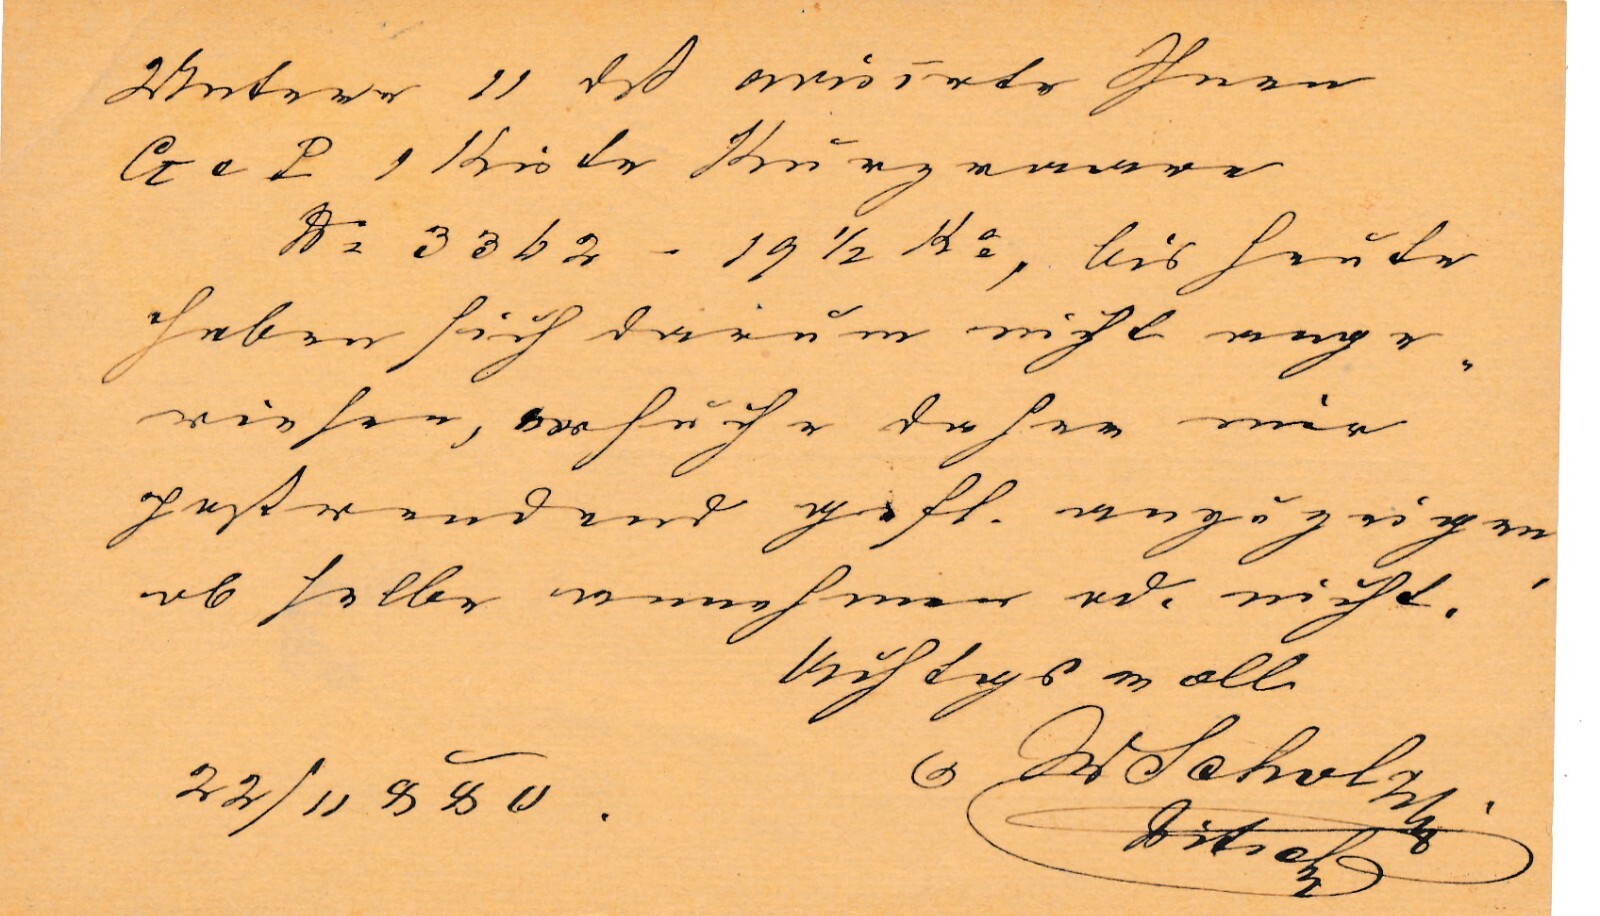 Unterm 11 dß avisirte Ihnen
G & P 1 Kiste Kurzwaare
No 3362 - 19 1/2 Ko, bis heute
haben sich darum nicht ange-
wiesen, ersuche daher mir
postwendend gefl. anzuzeigen,
ob selbe annehmen od. nicht.
Achtungsvoll
W Scholz
22/11 880.